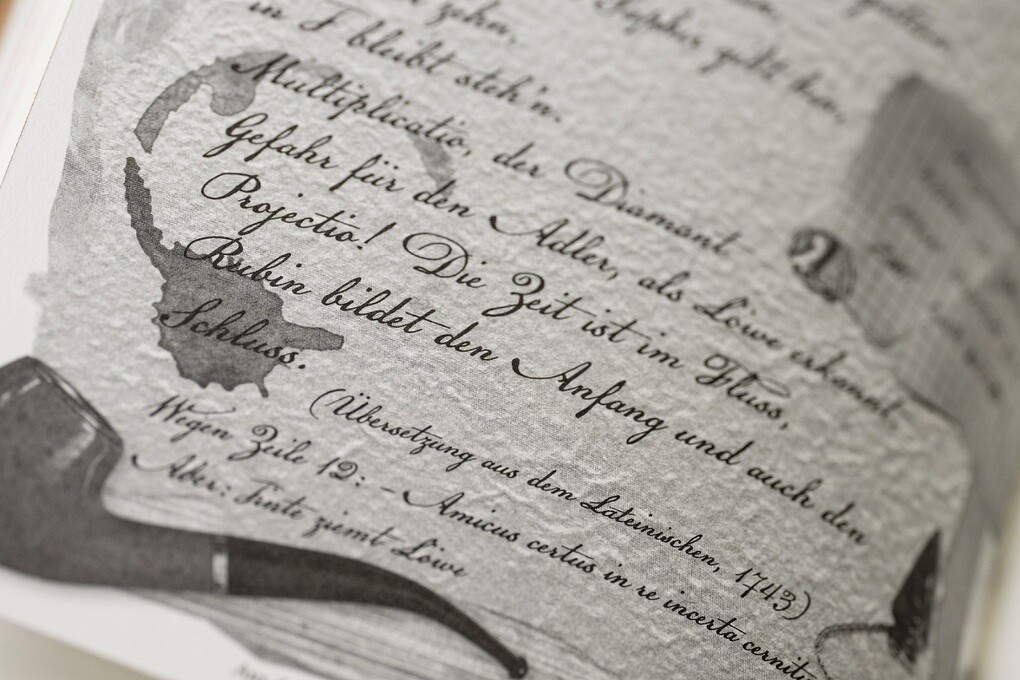 zehn,
in F bleibt steh'n.
Multiplicatio, der Diamant –
Gefahr für den Adler, als Löwe erkannt,
Projectio! Die Zeit ist im Fluss,
Rubin bildet den Anfang und auch den
Schluss.
(Übersetzung aus dem Lateinischen, 1743)
Wegen Zeile 12: – Amicus certus in re incerta cernitu
Aber: Tinte ziemt Löwe